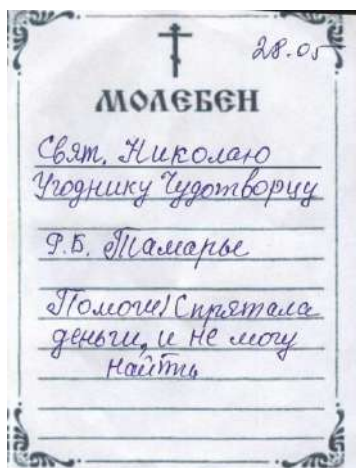 28.05
МОЛЕБЕН
Свят. Николаю
Угоднику Чудотворцу
Р.Б. Тамарье
Помоги! Спрятала
деньги, и не могу
найти